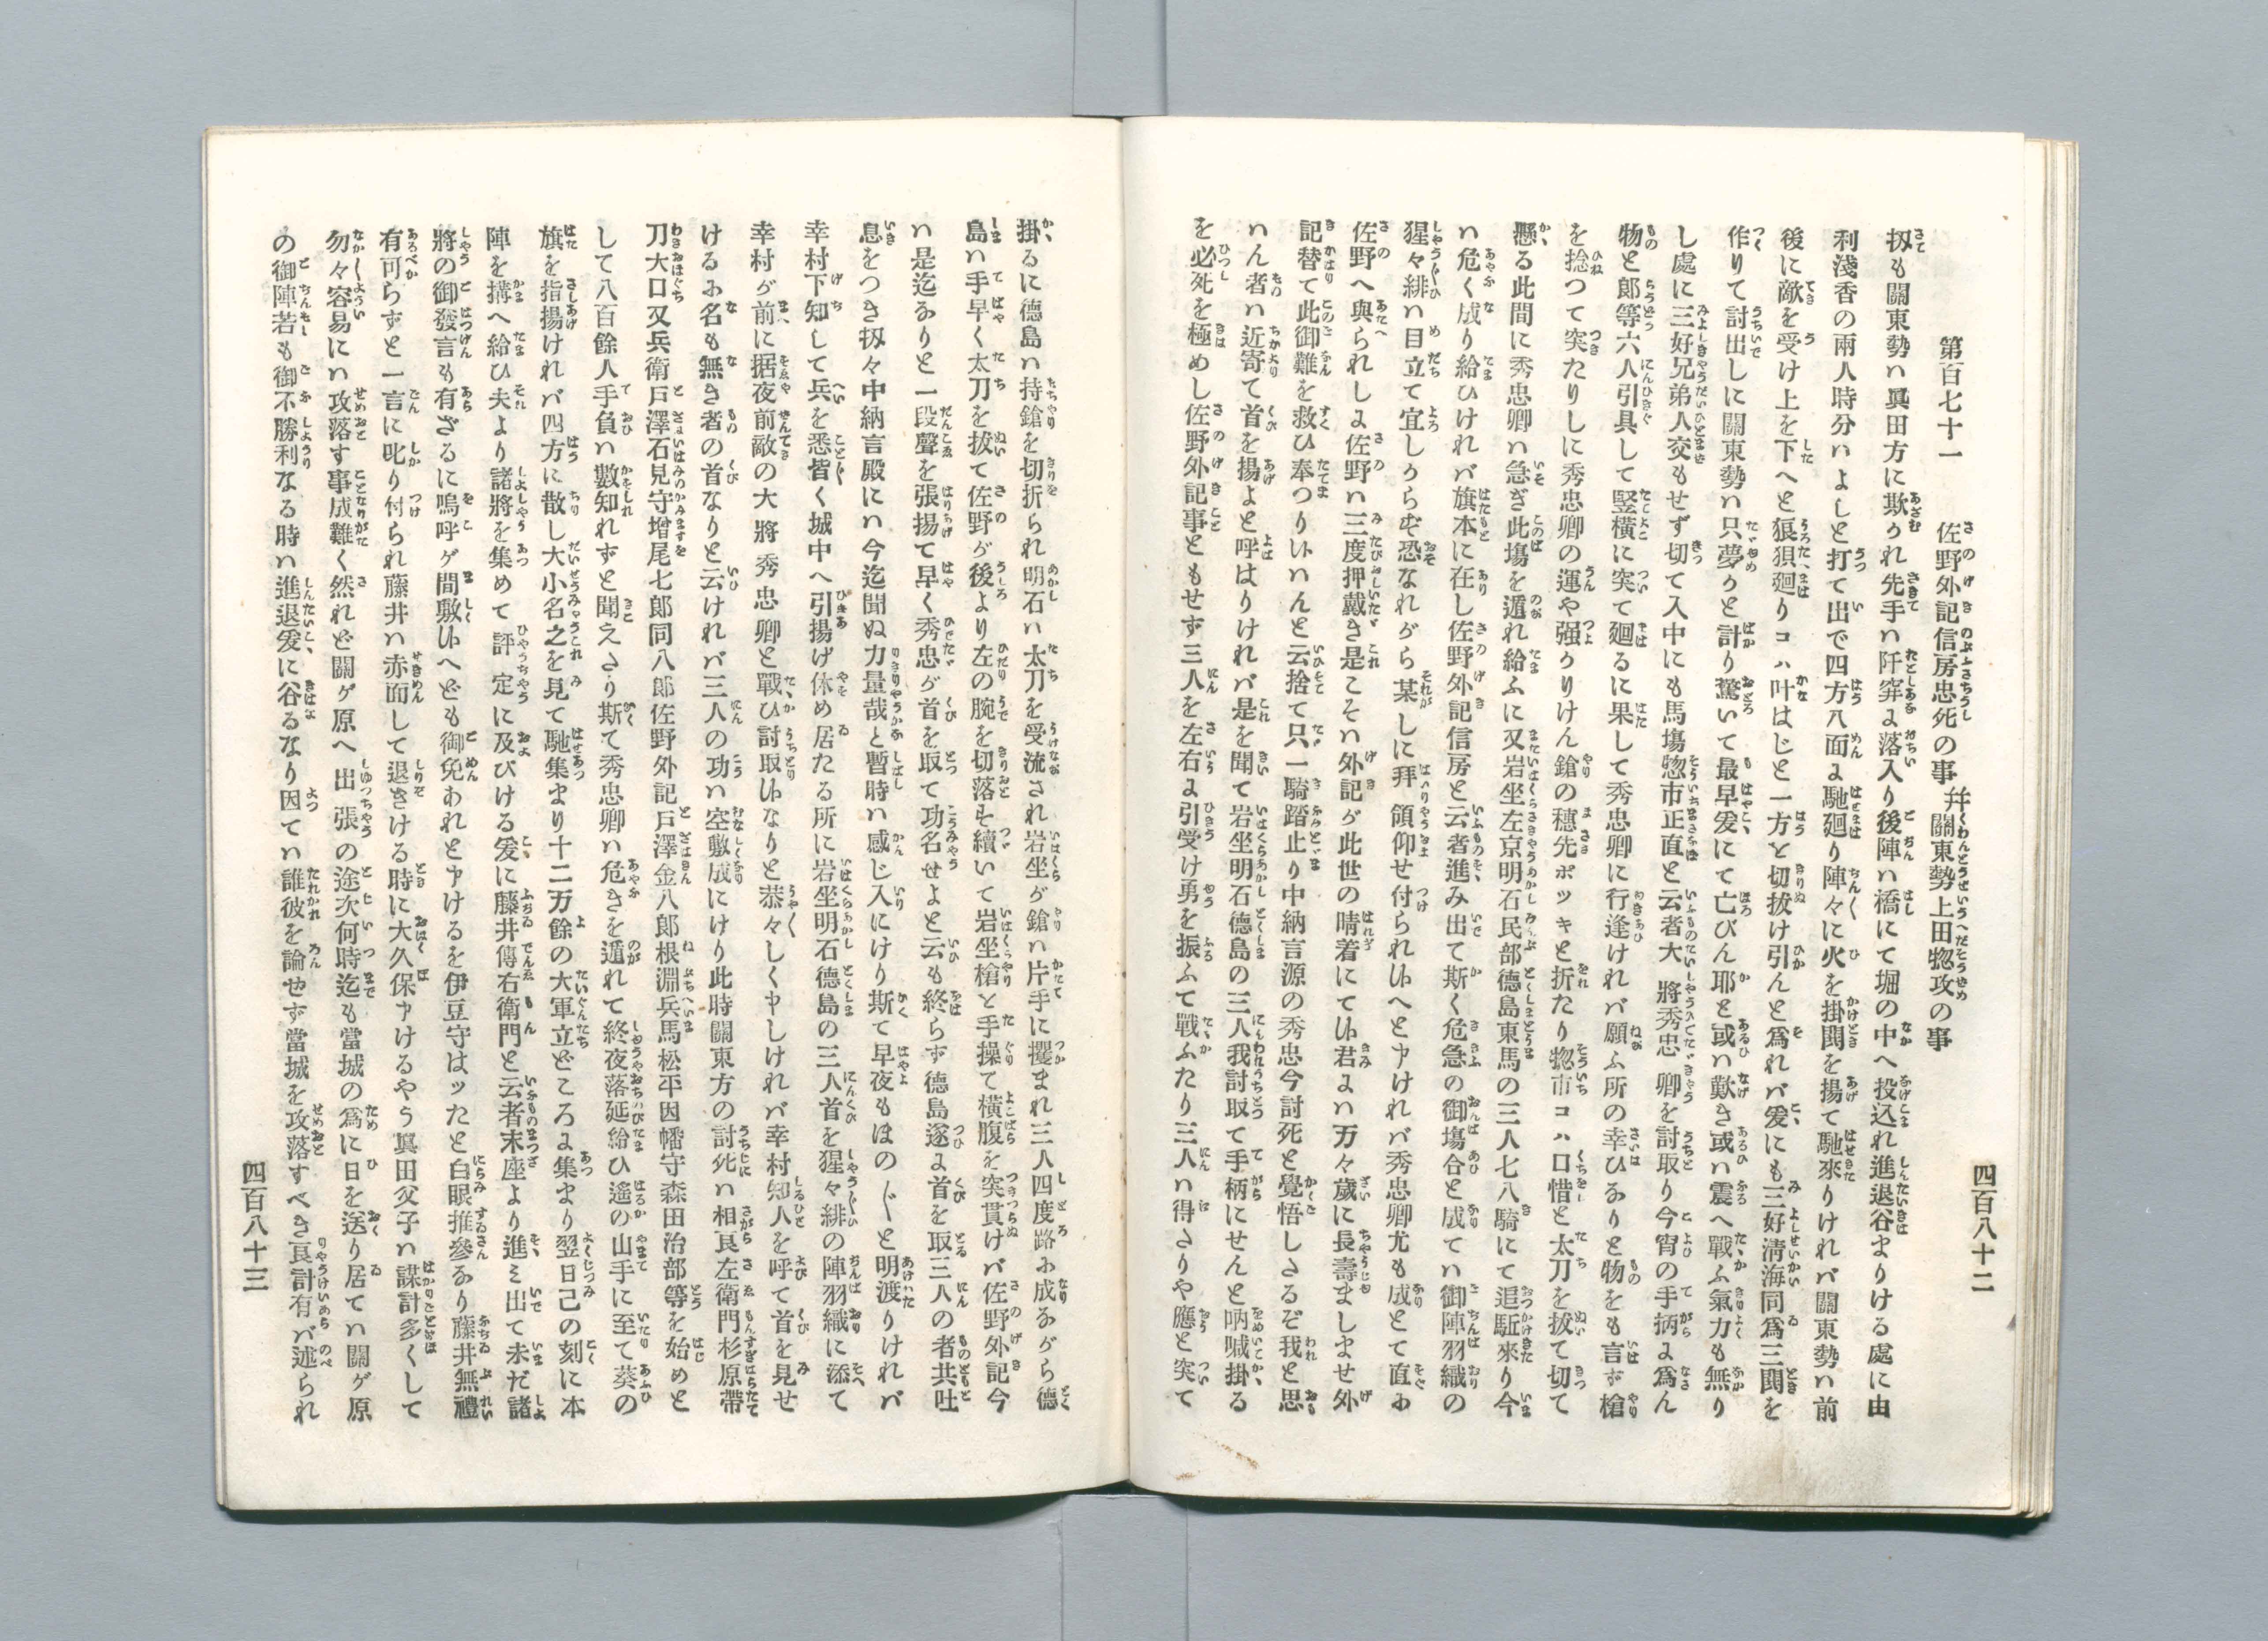 四百八十二
第百七十一　佐野外記信房忠死の事并關東勢上田惣攻の事
扨も關東勢ハ眞田方に欺かれ先手ハ阱穽よ落入り後陣ハ橋にて堀の中へ投込れ進退谷まりける處に由
利淺香の兩人時分ハよしと打て出で四方八面よ馳廻り陣々に火を掛鬨を揚て馳來りけれバ關東勢ハ前
後に敵を受け上を下へと狼狽廻りコハ叶はじと一方を切抜け引んと爲れバ爰にも三好淸海同爲三鬨を
作りて討出しに關東勢ハ只夢かと計り驚いて最早爰にて亡びん耶と或ハ歎き或ハ震へ戰ふ氣力も無り
し處に三好兄弟人交もせず切て入中にも馬塲惣市正直と云者大將秀忠卿を討取り今宵の手抦よ爲ん
物と郎等六人引具して竪横に突て廻るに果して秀忠卿に行逢けれバ願ふ所の幸ひなりと物をも言ず槍
を捻つて突たりしに秀忠卿の運や强かりけん鎗の穗先ポッキと折たり惣市コハ口惜と太刀を拔て切て
懸る此間に秀忠卿ハ急ぎ此塲を遁れ給ふに又岩坐左京明石民部德島東馬の三人七八騎にて追駈來り今
ハ危く成り給ひけれバ旗本に在し佐野外記信房と云者進み出て斯く危急の御塲合と成てハ御陣羽織の
猩々緋ハ目立て宜しからず恐なれがら某しに拜領仰せ付られ候へと申けれバ秀忠卿尤も成とて直ぉ
佐野へ與られしよ佐野ハ三度押戴き是こそハ外記が此世の晴着にて候君よハ万々歲に長壽ましませ外
記替て此御難を救ひ奉つり候ハんと云捨て只一騎踏止り中納言源の秀忠今討死と覺悟しさるぞ我と思
ハん者ハ近寄て首を揚よと呼はりけれバ是を聞て岩坐明石德島の三人我討取て手柄にせんと吶喊掛る
を必死を極めし佐野外記事ともせず三人を左右よ引受け勇を振ふて戰ふたり三人ハ得さりや應と突て
掛るに德島ハ持鎗を切折られ明石ハ太刀を受流され岩坐が鎗ハ片手に攫まれ三人四度路ふ成ながら德
島ハ手早く太刀を拔て佐野が後より左の腕を切落せ續いて岩坐槍を手操て橫腹を突貫けバ佐野外記今
ハ是迄なりと一段聲を張揚て早く秀忠が首を取て功名せよと云も終らず德島遂よ首を取三人の者共吐
息をつき扨々中納言殿にハ今迄聞ぬ力量哉と暫時ハ感じ入にけり斯て早夜もほの〲と明渡りけれバ
幸村下知して兵を悉皆く城中へ引揚げ休め居たる所に岩坐明石德島の三人首を猩々緋の陣羽織に添て
幸村が前に据夜前敵の大將秀忠卿と戰ひ討取候なりと恭々しく申しけれバ幸村知人を呼て首を見せ
けるふ名も無き者の首なりと云けれバ三人の功ハ空敷成にけり此時關東方の討死ハ相良左衞門杉原帶
刀大口又兵衞戸澤石見守增尾七郎同八郎佐野外記戸澤金八郎根淵兵馬松平因幡守森田治部等を始めと
して八百餘人手負ハ數知れずと聞えさり斯て秀忠卿ハ危きを遁れて終夜落延給ひ遙の山手に至て葵の
旗を指揚けれバ四方に散し大小名之を見て馳集まり十二万餘の大軍立どころよ集まり翌日己の刻に本
陣を搆へ給ひ夫より諸將を集めて評定に及びける爰に藤井傳右衞門と云者末座より進ミ出て未だ諸
將の御發言も有ざるに嗚呼ヶ間敷候へども御免あれと申けるを伊豆守はッたと白眼推參なり藤井無禮
有可らずと一言に叱り付られ藤井ハ赤面して退きける時に大久保申けるやう眞田父子ハ謀計多くして
勿々容易にハ攻落す事成難く然れど關ヶ原へ出張の途次何時迄も當城の爲に日を送り居てハ關ヶ原
の御陣若も御不勝利なる時ハ進退爰に谷るなり因てハ誰彼を論せず當城を攻落すべき良計有バ述られ
四百八十三